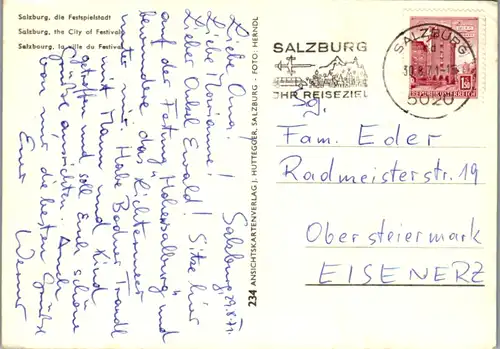 Salzburg, die Festspielstadt
Salzburg, the City of Festival
Salzbourg, la ville du Festival
Salzburg, 29.8.71
Liebe Oma!
Liebe Mariane!
Lieber Onkel Ewald! Sitze hier
auf der Festung "Hohensalzburg" und
bewundere das Lichtermeer
unter mir. Habe Badner Traudl
mit Mann und Kind
getroffen und soll Euch schöne
Grüße ausrichten. Auch
von mir die besten Grüße
Euer Werner
234 ANSICHTSKARTENVERLAG J. HUTTEGGER, SALZBURG - FOTO: HERNDL
SALZBURG
IHR REISEZIEL
SALZBURG
5020
REPUBLIK ÖSTERREICH
Fam. Eder
Radmeisterstr. 19
Obersteiermark
EISENERZ